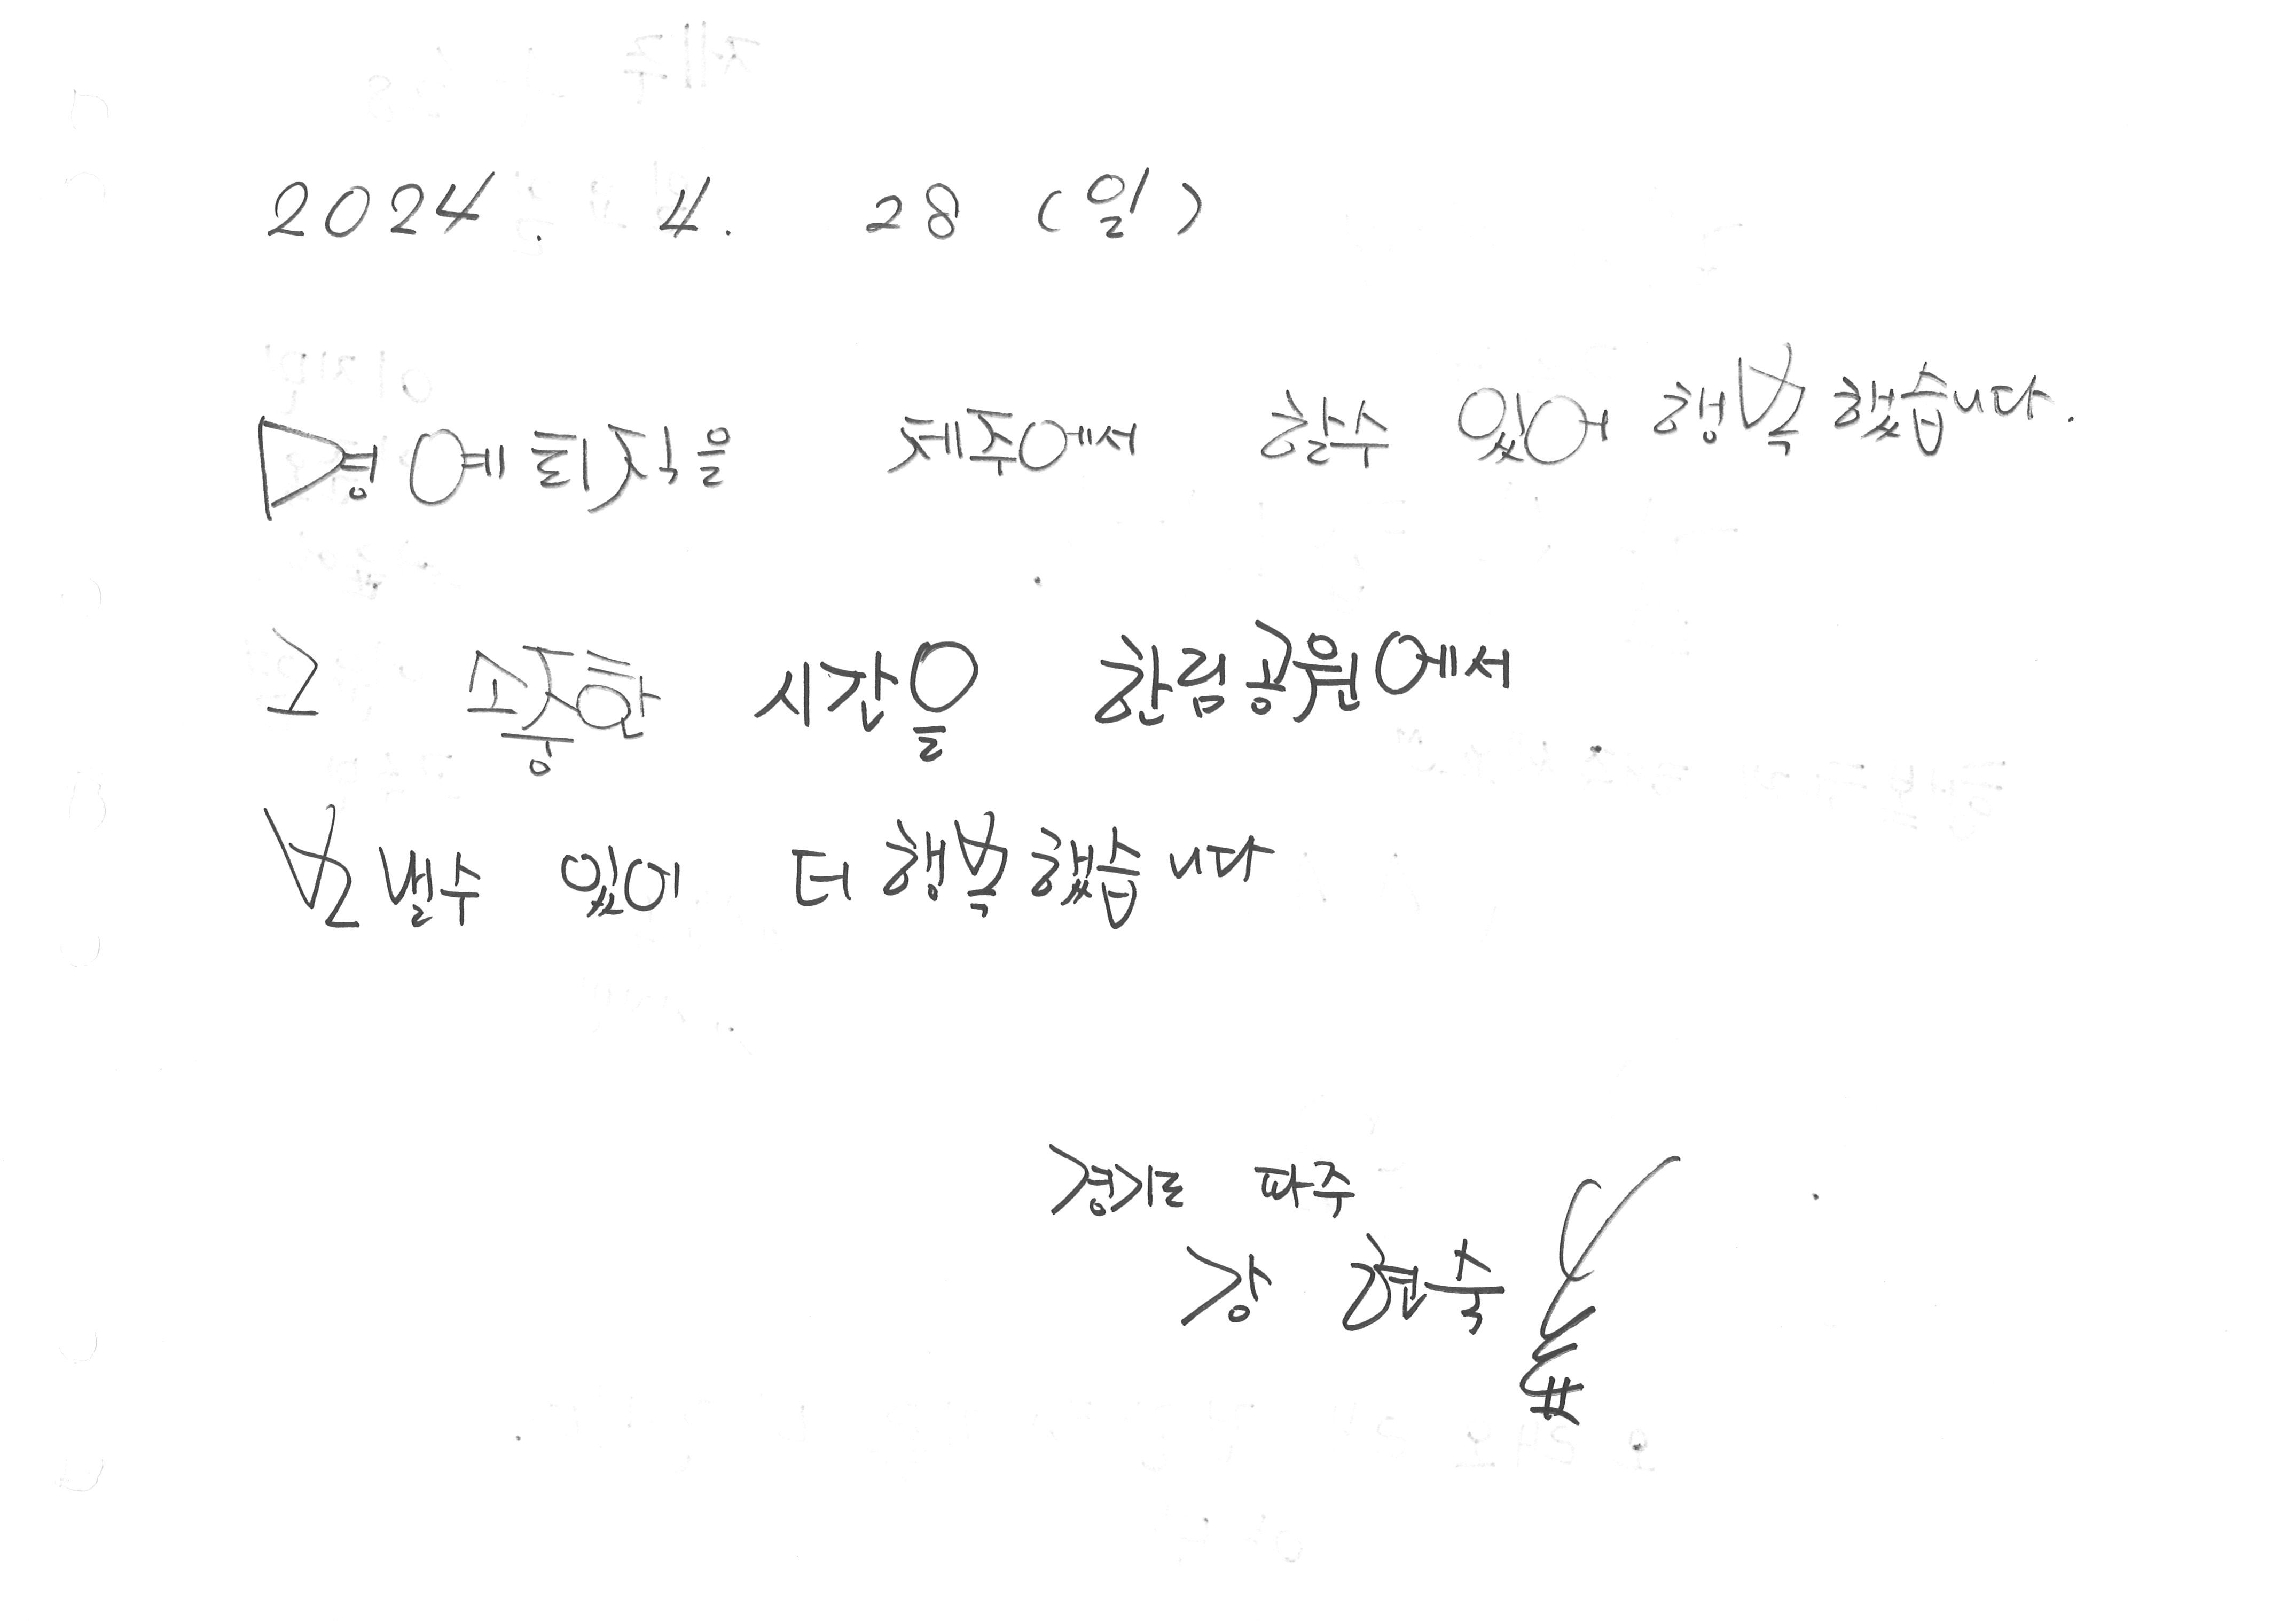 2024. 4. 28 (일)
명예퇴직을 제주에서 할수 있어 행복했습니다.
그 소중한 시간을 한림공원에서
보낼수 있어 더 행복했습니다
경기도 파주
강 현숙